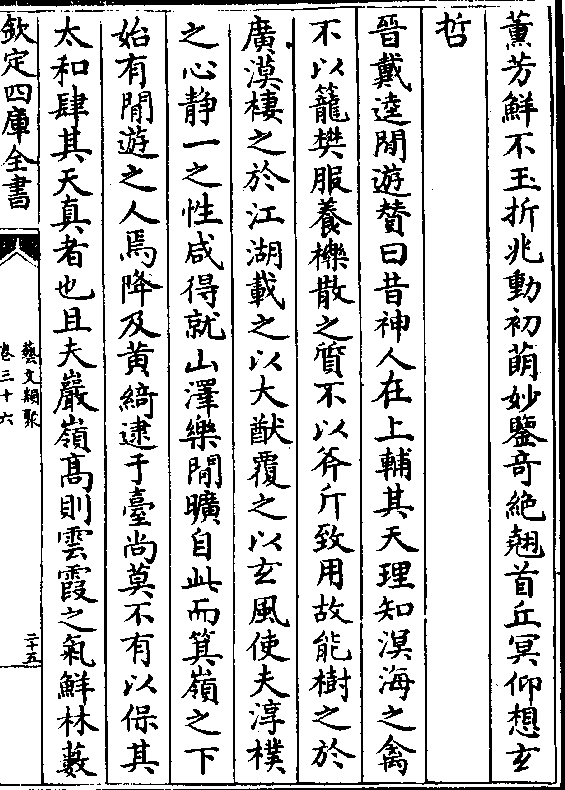 薫芳鮮不玉折兆動初萌妙鑒竒絶翹首丘冥仰想玄
哲
晉戴逵閒遊賛曰昔神人在上輔其天理知溟海之禽
不以籠樊服養櫟散之質不以斧斤致用故能樹之於
廣漠棲之於江湖載之以大猷覆之以玄風使夫淳樸
之心静一之性咸得就山澤樂閒曠自此而箕嶺之下
始有閒遊之人焉降及黄綺逮于臺尚莫不有以保其
太和肆其天真者也且夫巖嶺髙則雲霞之氣鮮林藪
欽定四庫全書
藝文類聚
卷三十六
二十五